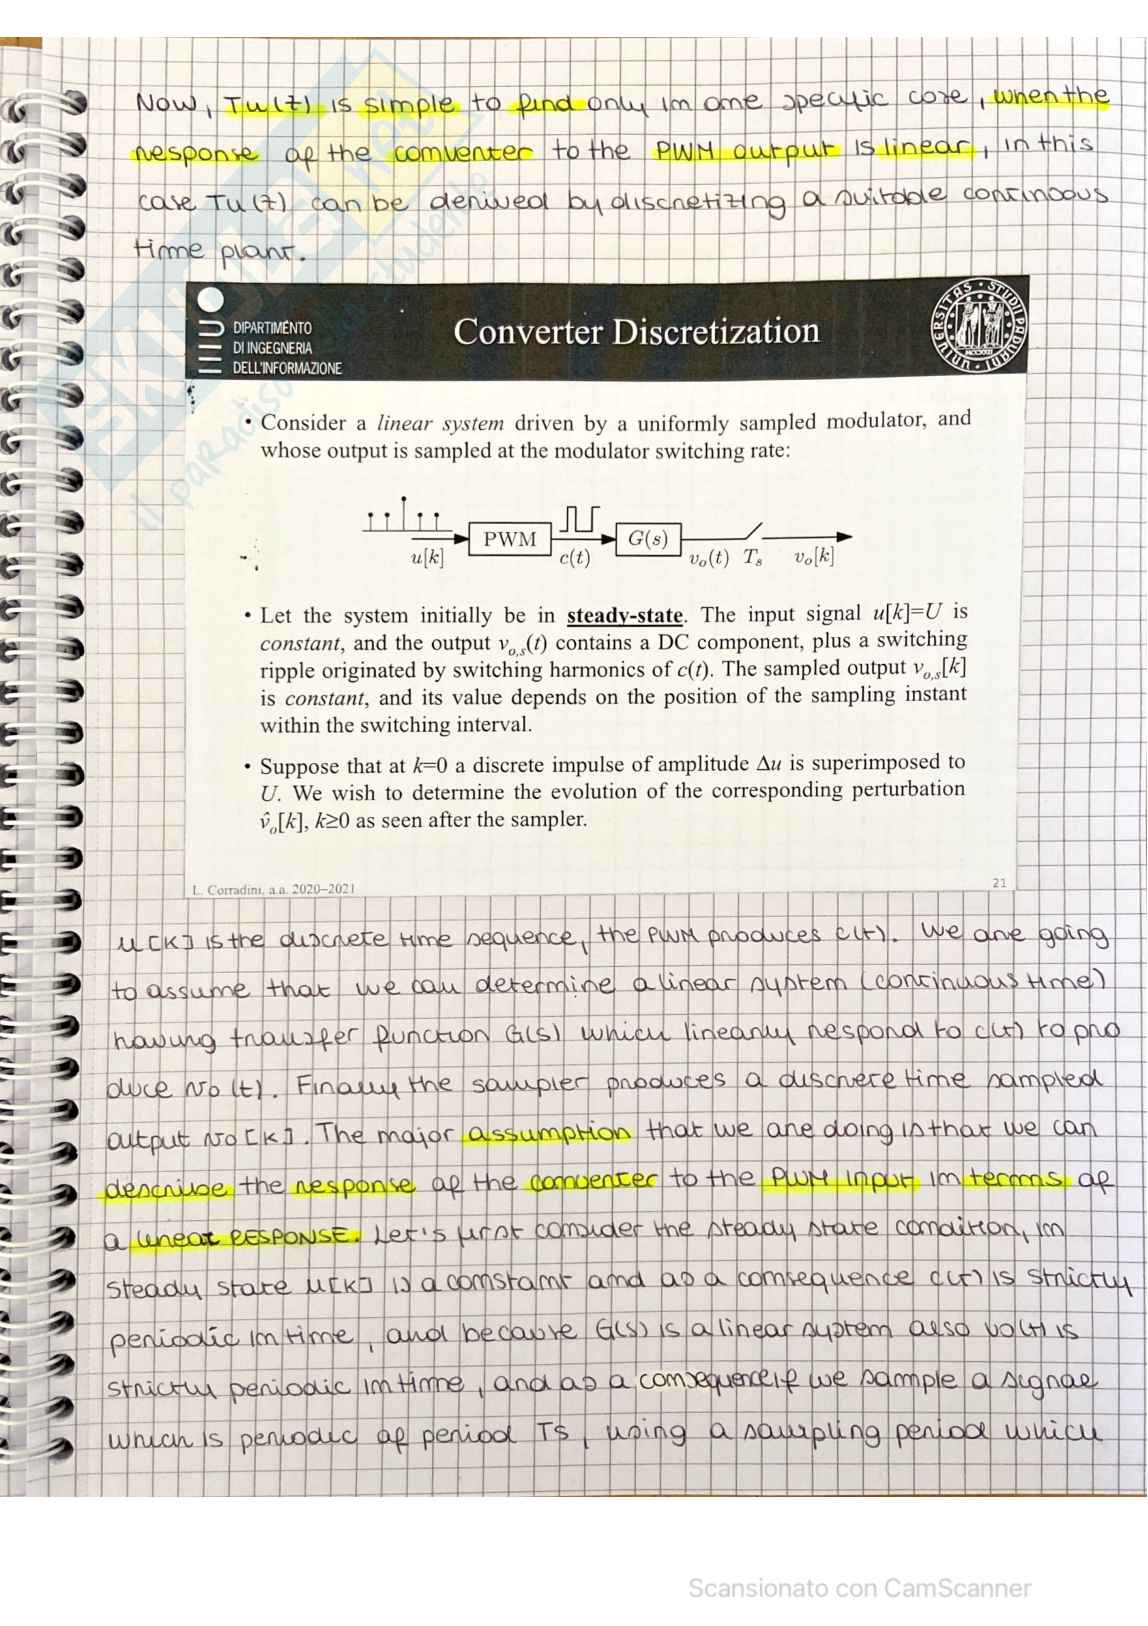 Now, Tu(z) is simple to find only in one specific case, when the
response of the converter to the PWM output is linear, in this
case Tu(z) can be derived by discretizing a suitable continous
time plant.
DIPARTIMENTO
DI INGEGNERIA
DELL'INFORMAZIONE
Converter Discretization
• Consider a linear system driven by a uniformly sampled modulator, and
whose output is sampled at the modulator switching rate:
PWM
G(s)
u[k]
c(t)
vo(t)
Ts
vo[k]
• Let the system initially be in steady-state. The input signal u[k]=U is
constant, and the output vo,s(t) contains a DC component, plus a switching
ripple originated by switching harmonics of c(t). The sampled output vo,s[k]
is constant, and its value depends on the position of the sampling instant
within the switching interval.
• Suppose that at k=0 a discrete impulse of amplitude Δu is superimposed to
U. We wish to determine the evolution of the corresponding perturbation
v̂o[k], k≥0 as seen after the sampler.
L. Corradini, a.a. 2020–2021
21
u[k] is the discrete time sequence, the PWM produces c(t). We are going
to assume that we can determine a linear system (continuous time)
having transfer function G(s) which linearly respond to c(t) to pro
duce vo(t). Finally the sampler produces a discrete time sampled
output vo[k]. The major assumption that we are doing is that we can
describe the response of the converter to the PWM input in terms of
a linear RESPONSE. Let's first consider the steady state condition, in
steady state u[k] is a constant and as a consequence c(t) is strictly
periodic in time, and because G(s) is a linear system also vo(t) is
strictly periodic in time, and as a consequence if we sample a signal
which is periodic of period Ts, using a sampling period which
Scansionato con CamScanner